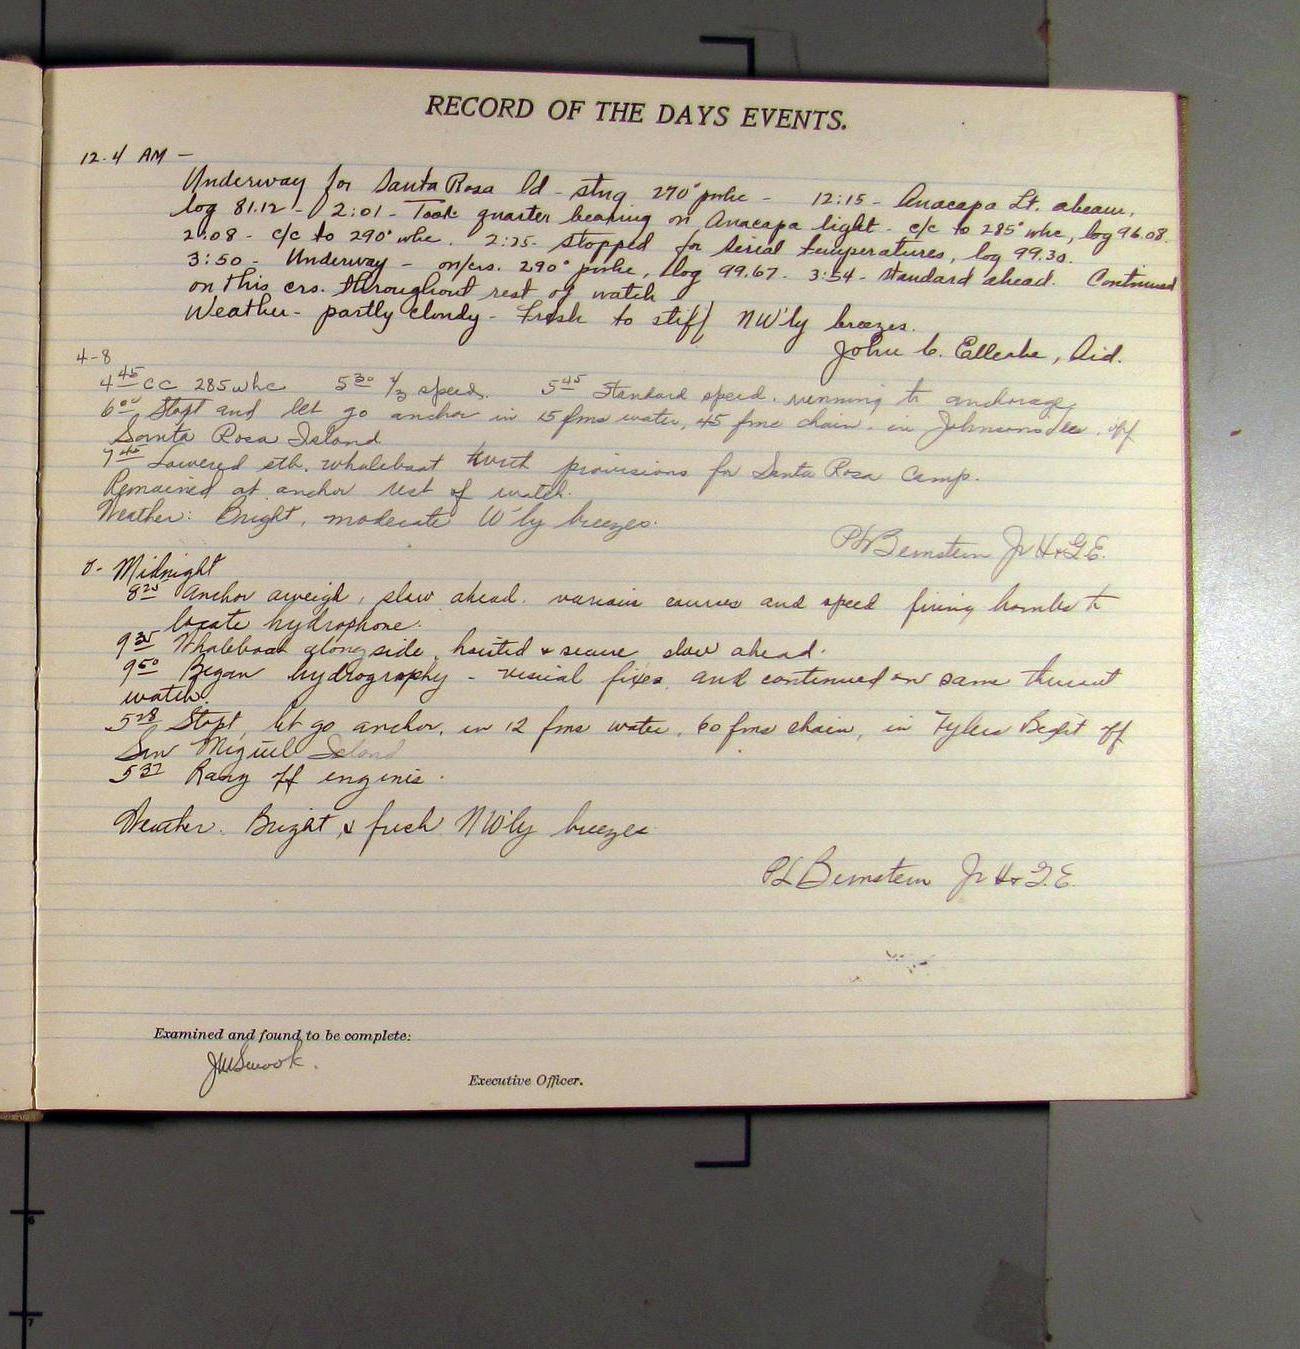 RECORD OF THE DAYS EVENTS.
12-4 AM -
Underway for Santa Rosa Id - stng 270° pwhc - 12:15 - Anacapa Lt. abeam,
log 81.12 - 2:01 - Took quarter bearing on Anacapa light - c/c to 285° whc, log 96.08.
2:08 - c/c to 290° whc. 2:25 - Stopped for serial temperatures, log 99.30.
3:50 - Underway - on/crs. 290° pwhc, log 99.67 - 3:54 - Standard ahead. Continued
on this crs. throughout rest of watch
Weather - partly cloudy - Fresh to stiff NW'ly breezes.
John C. Ellerbe, Aid.
4-8
4 45 CC 285 whc 5 30 ⅓ speed. 5 45 Standard speed, running to anchorage
6 00 Stopt and let go anchor in 15 fms water, 45 fms chain in Johnsons Lee, off
Santa Rosa Island
7 45 Lowered stb. whaleboat with provisions for Santa Rosa Camp.
Remained at anchor rest of watch.
Weather: Bright, moderate W'ly breezes.
PL Bernstein Jr H+G.E.
8- Midnight
8 25 Anchor aweigh, slow ahead. various courses and speed firing bombs to
locate hydrophone.
9 35 Whaleboat alongside, hoisted & secure slow ahead.
9 50 Began hydrography - visual fixes and continued on same thruout
watch.
5 28 Stopt, let go anchor, in 12 fms water, 60 fms chain, in Tylers Bight off
San Miguel Island
5 37 Rang off engines.
Weather. Bright, & fresh NW'ly breezes
PL Bernstein Jr H+G.E.
Examined and found to be complete:
Executive Officer.
6
7